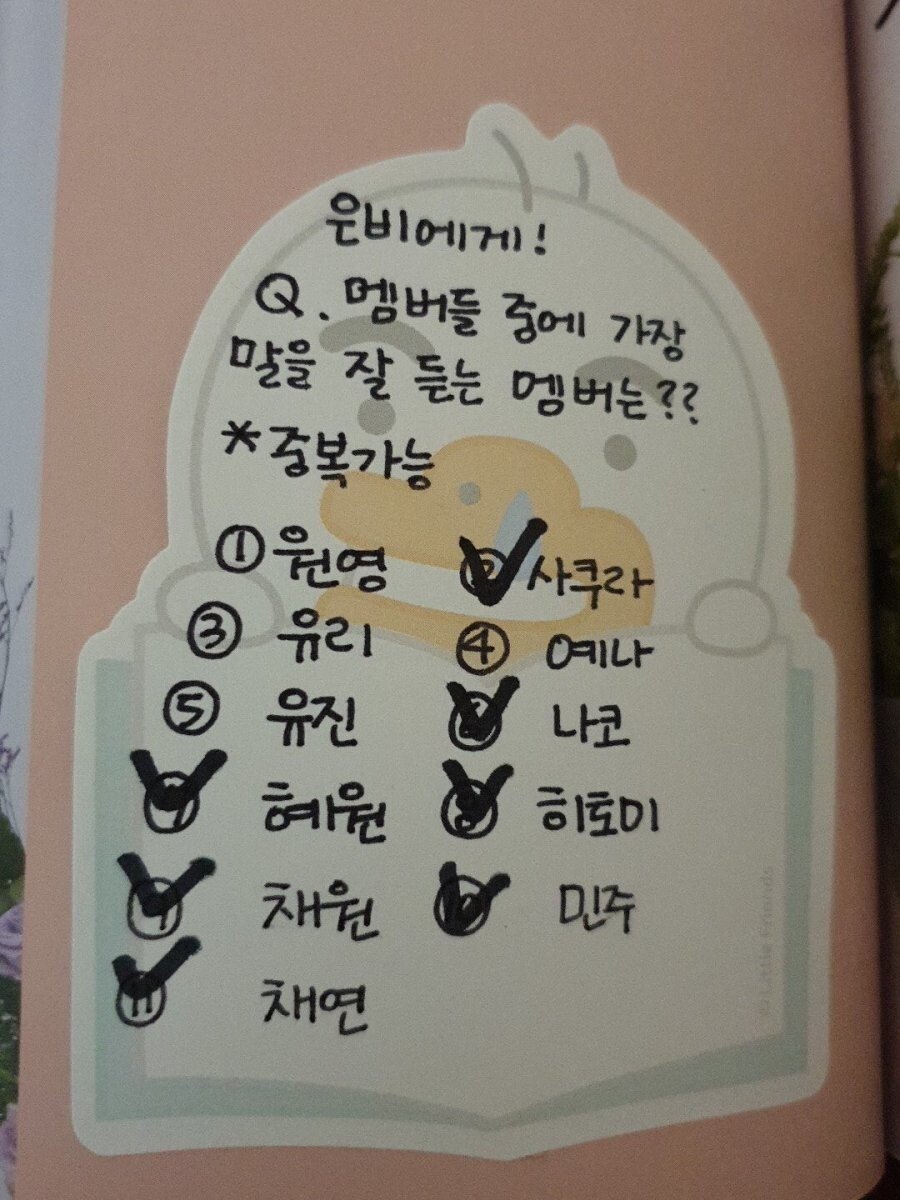 은비에게!
Q. 멤버들 중에 가장
말을 잘 듣는 멤버는??
*중복가능
① 원영 ② 사쿠라
③ 유리 ④ 예나
⑤ 유진 ⑥ 나코
⑦ 혜원 ⑧ 히토미
⑨ 채원 ⑩ 민주
⑪ 채연